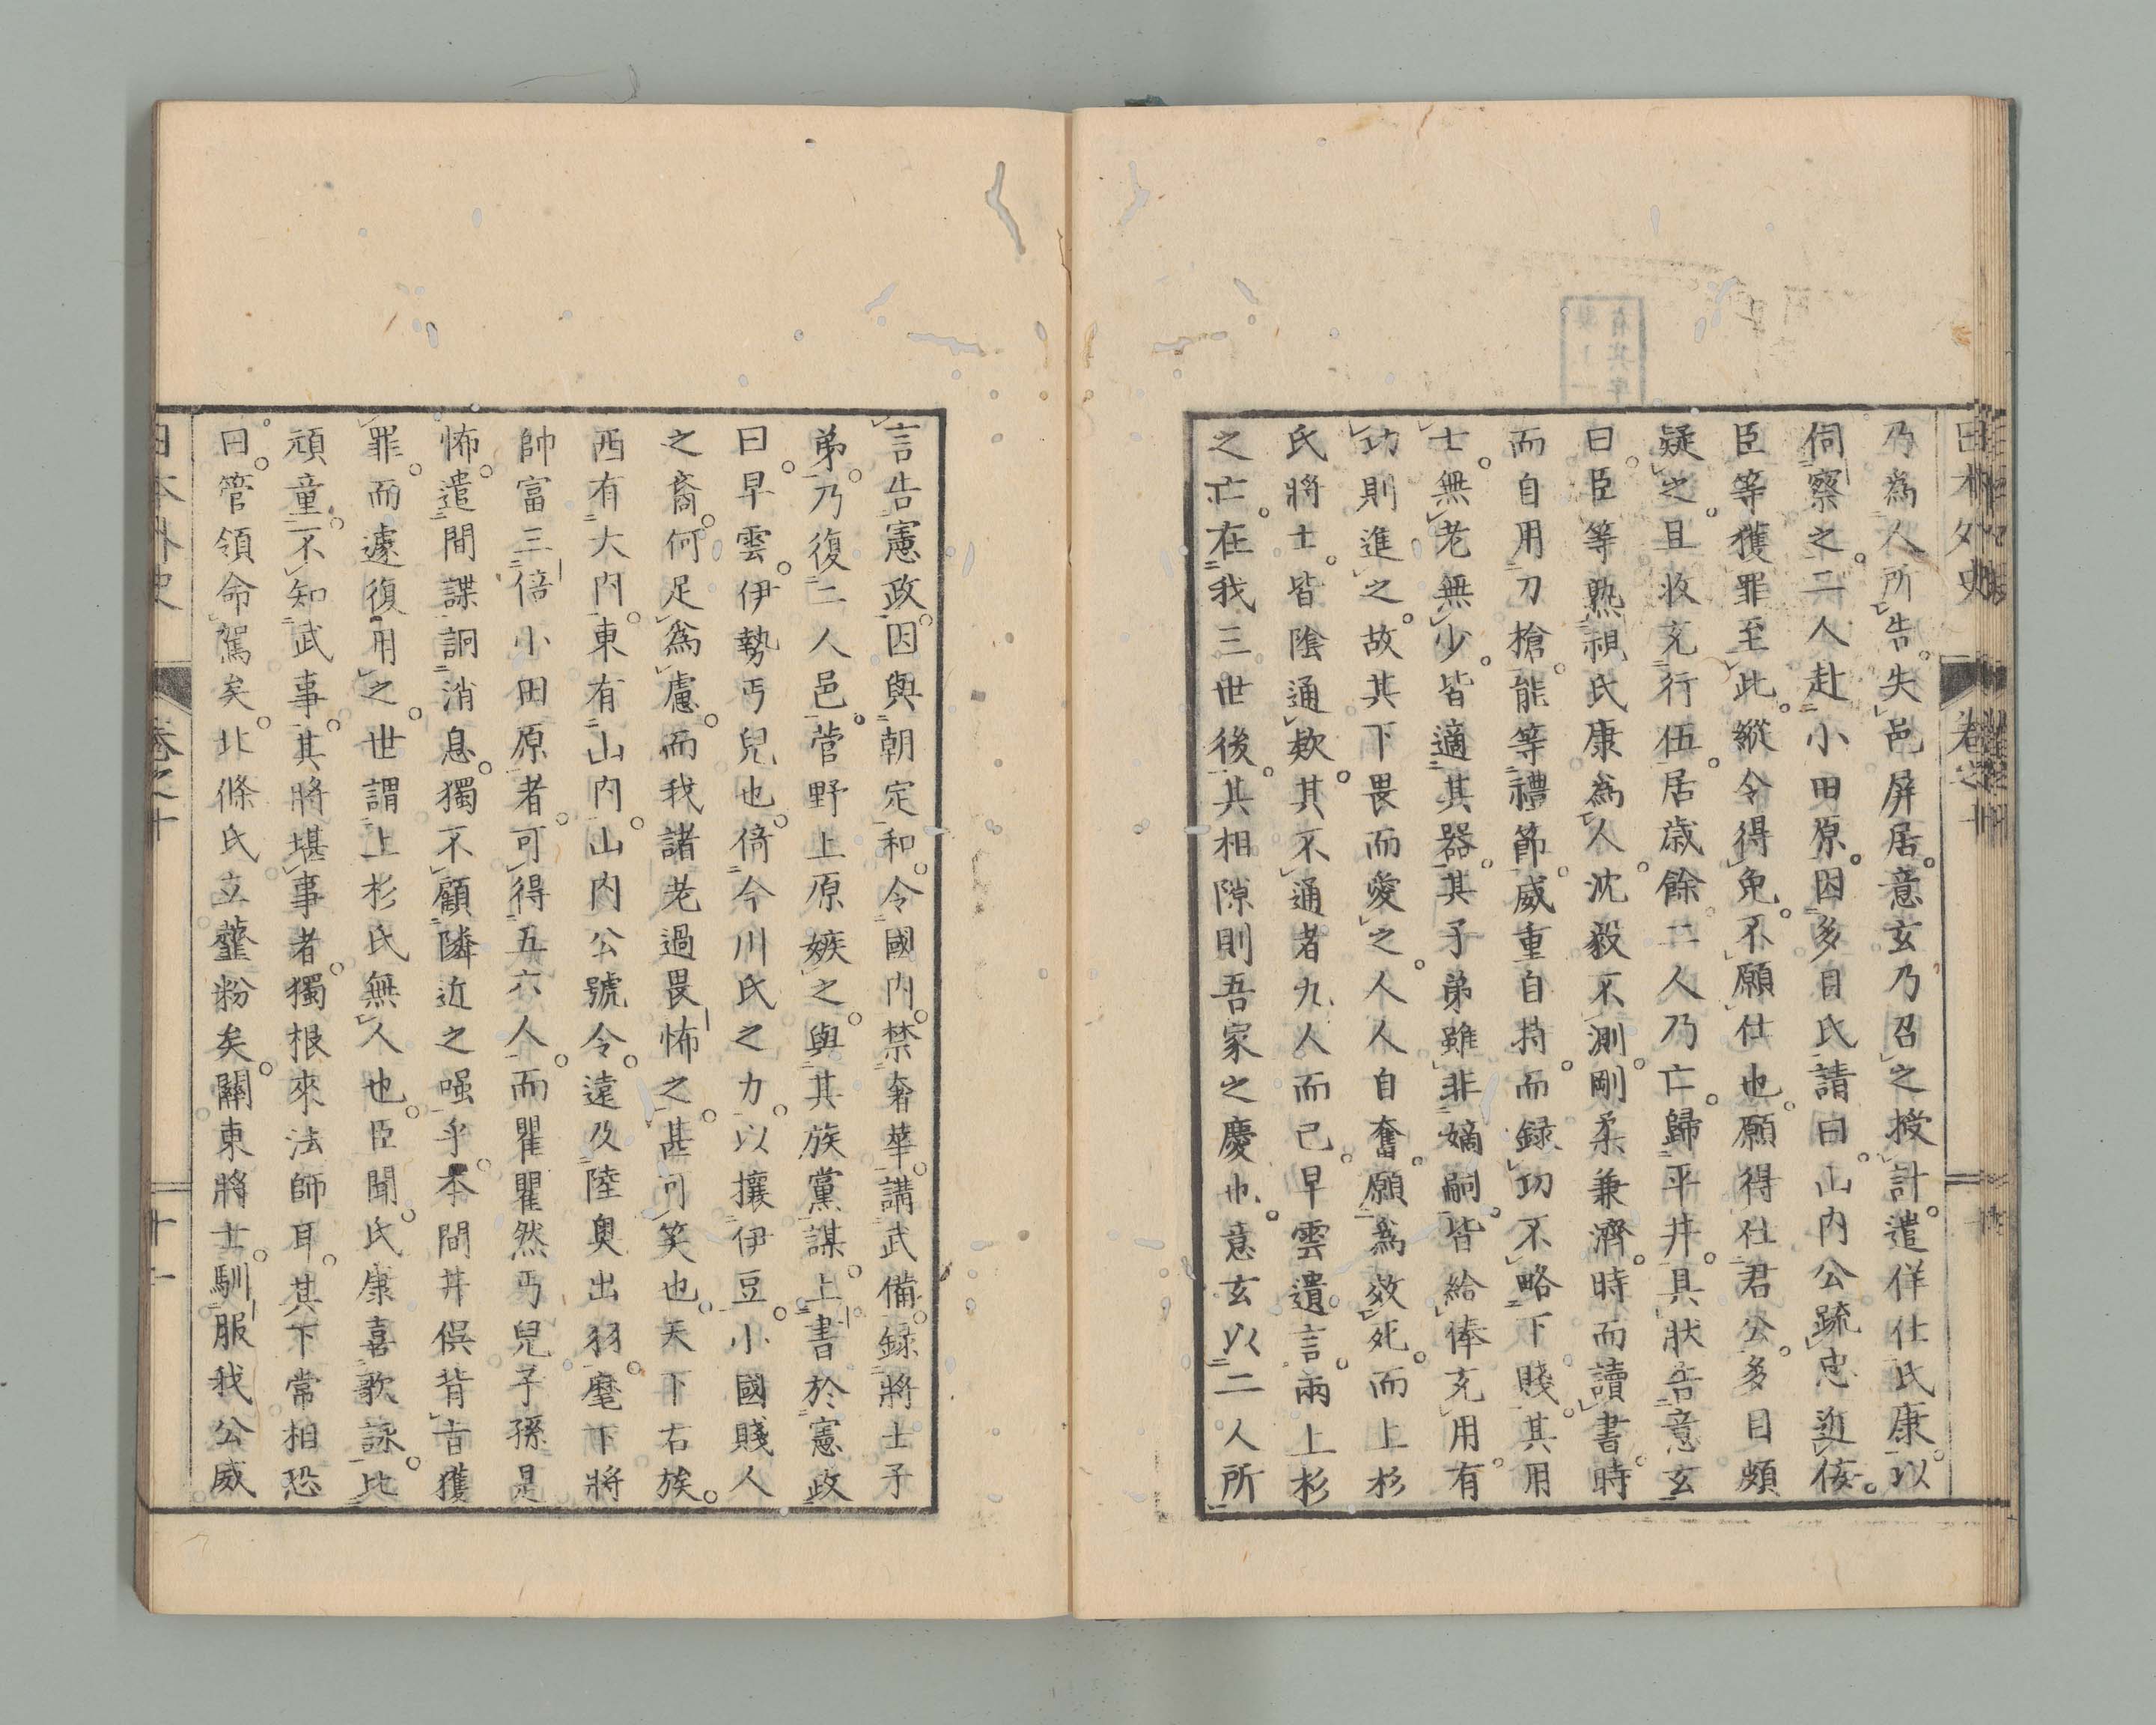 日本外史　卷之十
乃為人所告。失邑屏居。意玄乃召之授計。遣佯仕氏康。以
伺察之。二人赴小田原。因多目氏請曰。山内公疏忠近佞。
臣等獲罪至此。縱令得免。不願仕也。願得仕君公。多目頗
疑之。且收充行伍。居歲餘。二人乃亡。歸平井。具狀告意玄
曰。臣等熟視氏康為人。沈毅不測。剛柔兼濟。時而讀書。時
而自用刀槍。能等禮節。威重自持。而録功不略下賤。其用
士。無老無少。皆適其器。其子弟雖非嫡嗣。皆給俸充用。有
功則進之。故其下畏而愛之。人人自奮。願為效死。而上杉
氏將士。皆陰通欵。其不通者九人而已。早雲遺言。兩上杉
之亡。在我三世後。其相隙則吾家之慶也。意玄以二人所
言告憲政。因與朝定和。令國内。禁奢華。講武備。録將士子
弟。乃復二人邑。菅野上原嫉之。與其族黨謀。上書於憲政
曰。早雲。伊勢丐兒也。倚今川氏之力。以攘伊豆。小國賤人
之裔。何足為慮。而我諸老過畏怖之。甚可笑也。天下右族。
西有大内。東有山内。山内公號令。遠及陸奥出羽。麾下將
帥富三倍小田原者。可得五六人。而瞿瞿然丐兒子孫是
怖。遣間諜詗消息。獨不顧隣近之嗤乎。本間井俣背㫖獲
罪。而遽復用之。世謂上杉氏無人也。臣聞。氏康喜歌詠。比
頑童。不知武事。其將堪事者。獨根來法師耳。其下常相恐
曰。管領命駕矣。北條氏立虀粉矣。關東將士。馴服我公威
日本外史　卷之十　十一